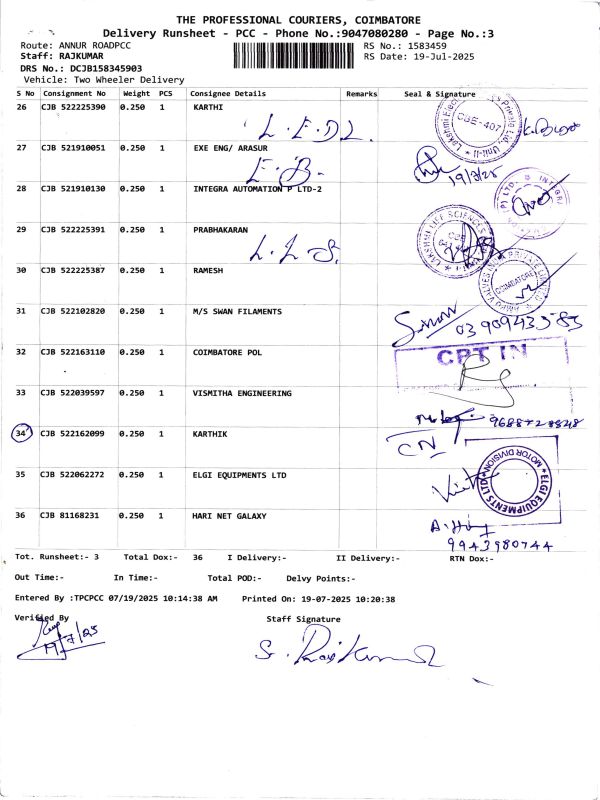 THE PROFESSIONAL COURIERS, COIMBATORE
Delivery Runsheet - PCC - Phone No.:9047080280 - Page No.:3
Route: ANNUR ROADPCC RS No.: 1583459
Staff: RAJKUMAR RS Date: 19-Jul-2025
DRS No.: DCJB158345903
Vehicle: Two Wheeler Delivery
S No Consignment No Weight PCS Consignee Details Remarks Seal & Signature
26 CJB 522225390 0.250 1 KARTHI
L.E.D.L. CBE-407
27 CJB 521910051 0.250 1 EXE ENG/ ARASUR
E.B. 19/7/25
28 CJB 521910130 0.250 1 INTEGRA AUTOMATION P LTD-2
29 CJB 522225391 0.250 1 PRABHAKARAN
L.L.S. LAKSHMI LIFE SCIENCES
30 CJB 522225387 0.250 1 RAMESH
COIMBATORE
31 CJB 522102820 0.250 1 M/S SWAN FILAMENTS
32 CJB 522163110 0.250 1 COIMBATORE POL
CPT IN
33 CJB 522039597 0.250 1 VISMITHA ENGINEERING
34 CJB 522162099 0.250 1 KARTHIK
CN
35 CJB 522062272 0.250 1 ELGI EQUIPMENTS LTD
ELGI EQUIPMENTS LTD MOTOR DIVISION
36 CJB 81168231 0.250 1 HARI NET GALAXY
9943980744
Tot. Runsheet:- 3 Total Dox:- 36 I Delivery:- II Delivery:- RTN Dox:-
Out Time:- In Time:- Total POD:- Delvy Points:-
Entered By :TPCPCC 07/19/2025 10:14:38 AM Printed On: 19-07-2025 10:20:38
Verified By Staff Signature
19/7/25 S. Rajkumar